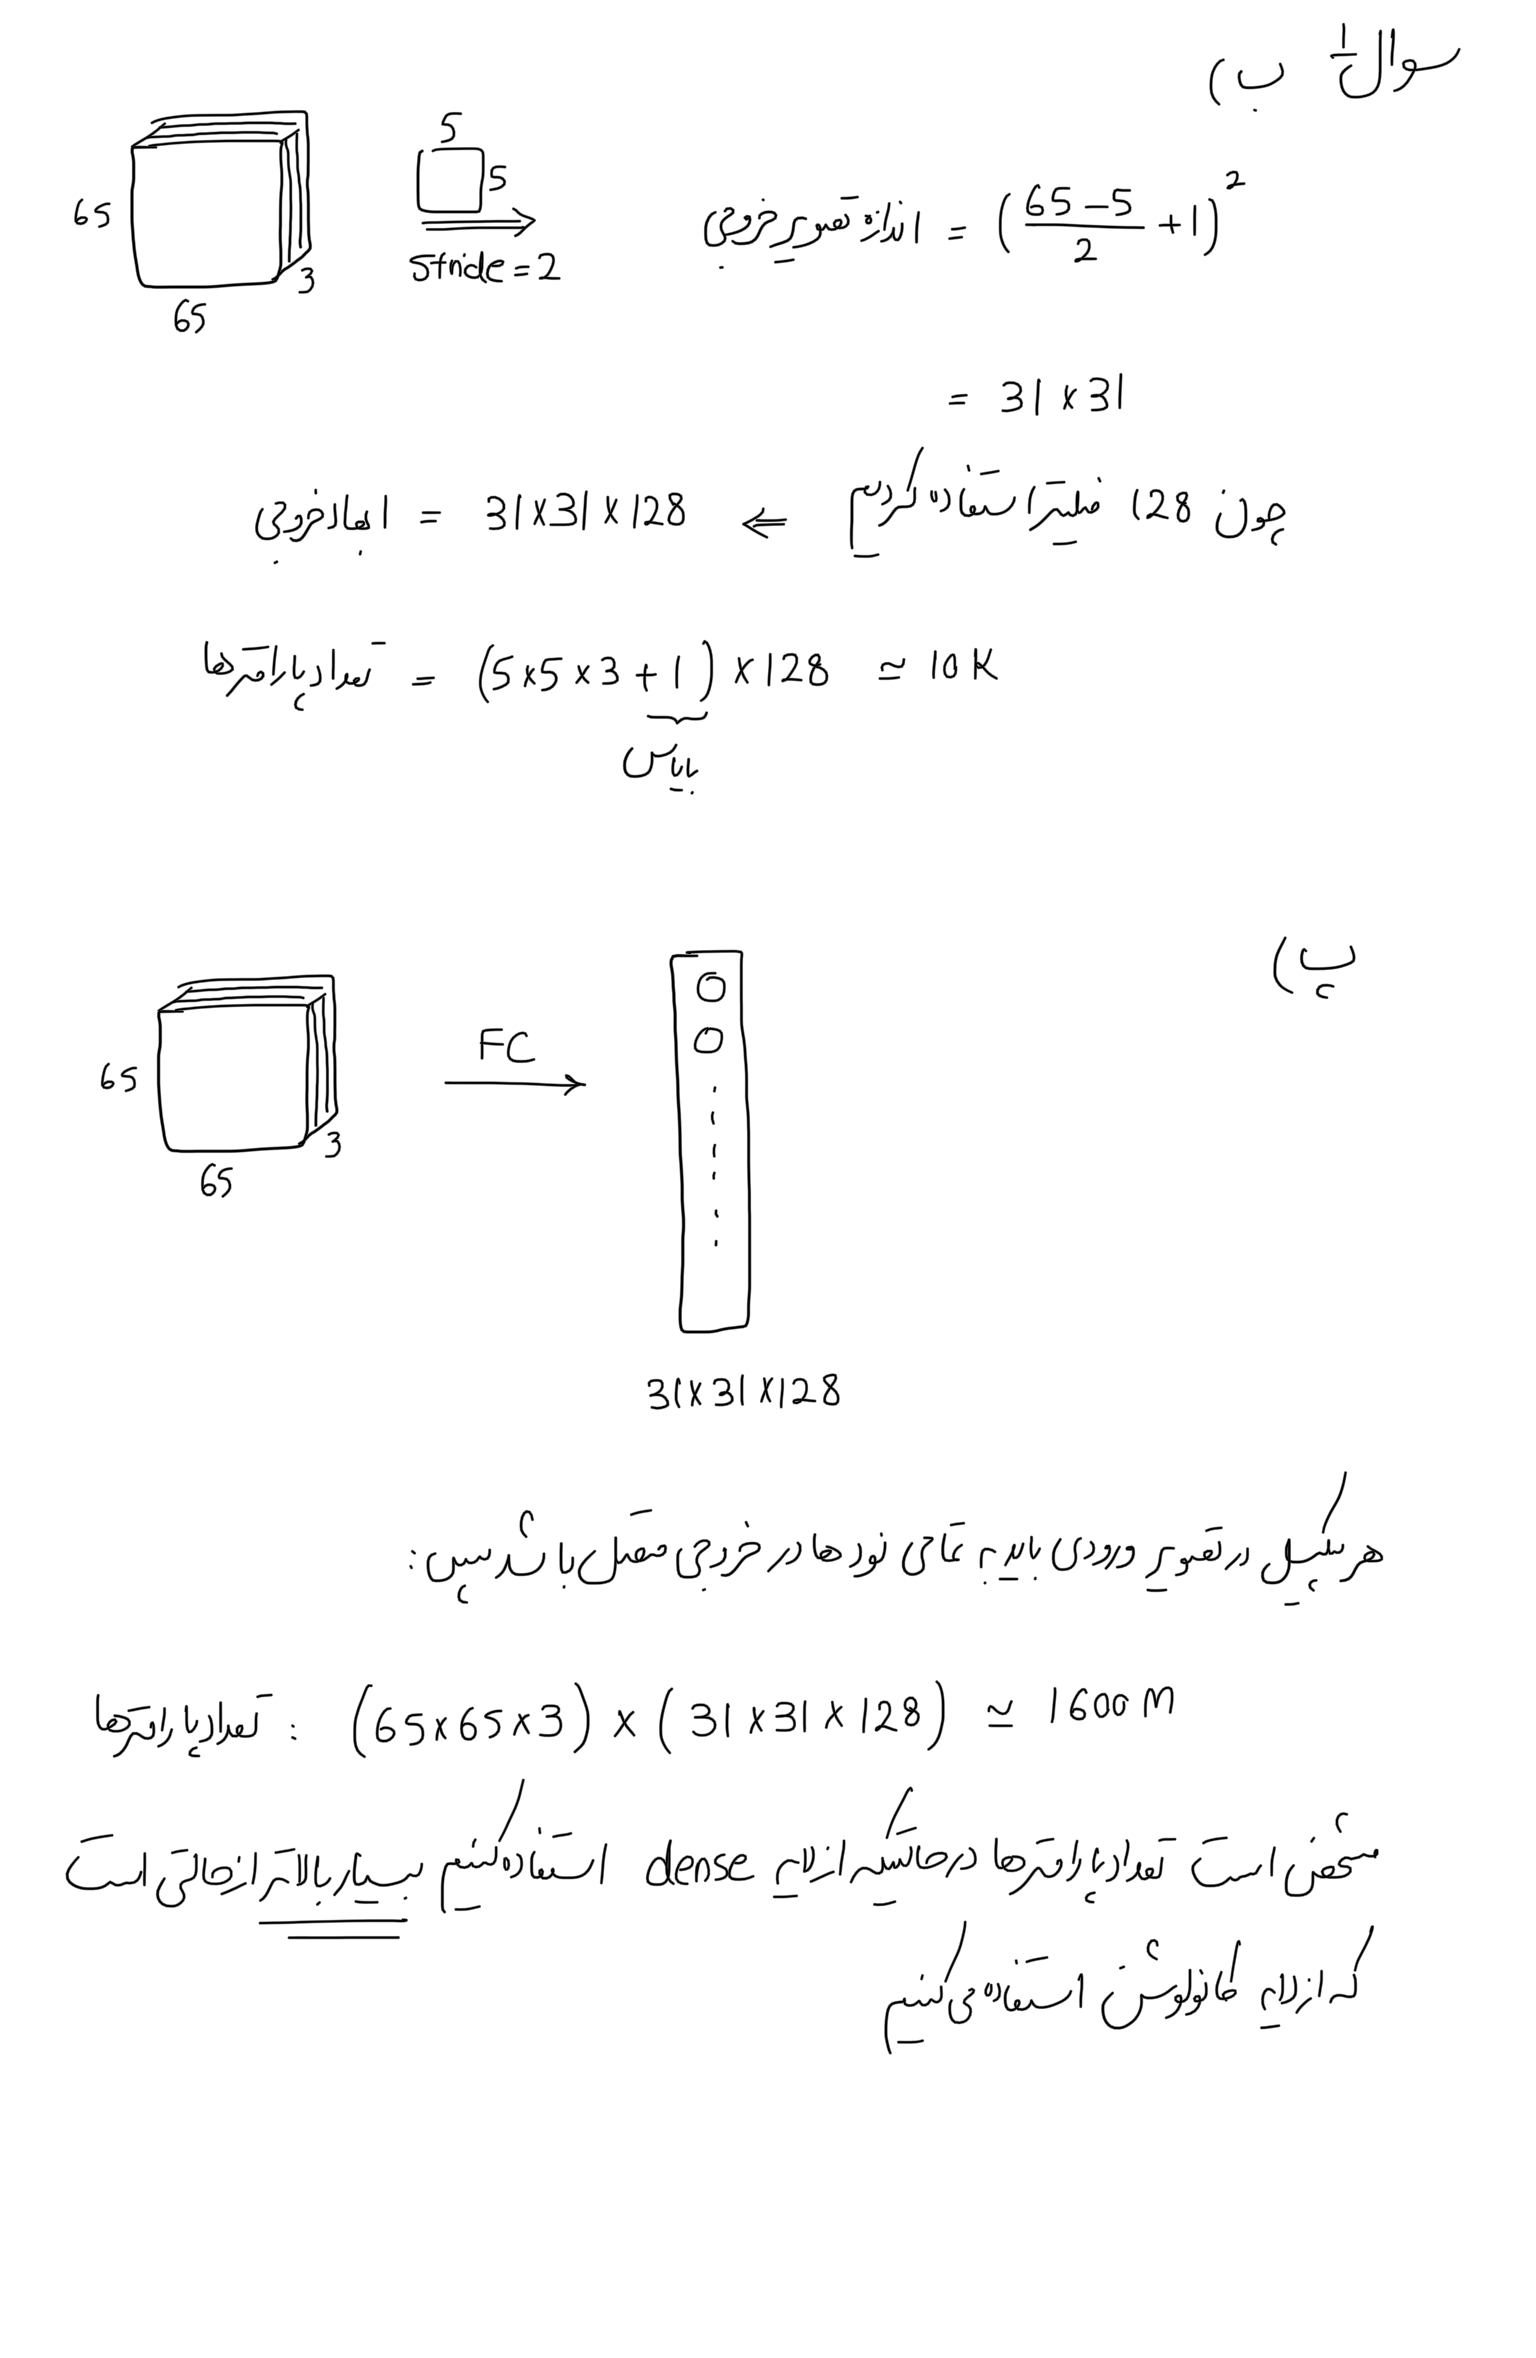 سوال ۱ ب)
65
65
3
5
5
stride = 2
اندازه تصویر خروجی = ((65 - 5)/2 + 1)²
= 31 × 31
چون 128 فیلتر استفاده کردیم ⇐ 31 × 31 × 128 = ابعاد خروجی
تعداد پارامترها = (5 × 5 × 3 + 1) × 128 ≃ 10K
بایاس
پ)
65
65
3
FC
31 × 31 × 128
هر پیکسل در تصویر ورودی باید به تمامی نودها در خروجی متصل باشد پس:
تعداد پارامترها: (65 × 65 × 3) × (31 × 31 × 128) ≃ 1600 M
مشخص است تعداد پارامترها در حالتی که از لایه dense استفاده کنیم بسیار بالاتر از حالتی است
که از لایه کانولوشن استفاده می کنیم